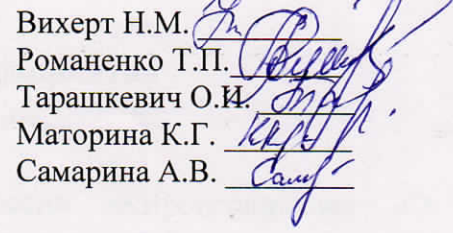 Вихерт Н.М.
Романенко Т.П.
Тарашкевич О.И.
Маторина К.Г.
Самарина А.В.